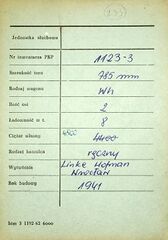 (233)
Jednostka służbowa
Nr inwentarza PKP 1123-3
Szerokość toru 785 mm
Rodzaj wagonu Wh
Ilość osi 2
Ładowność w t. 8
Ciężar własny 4400 4400
Rodzaj hamulca ręczny
Wytwórnia Linke Hofman
Wrocław
Rok budowy 1941